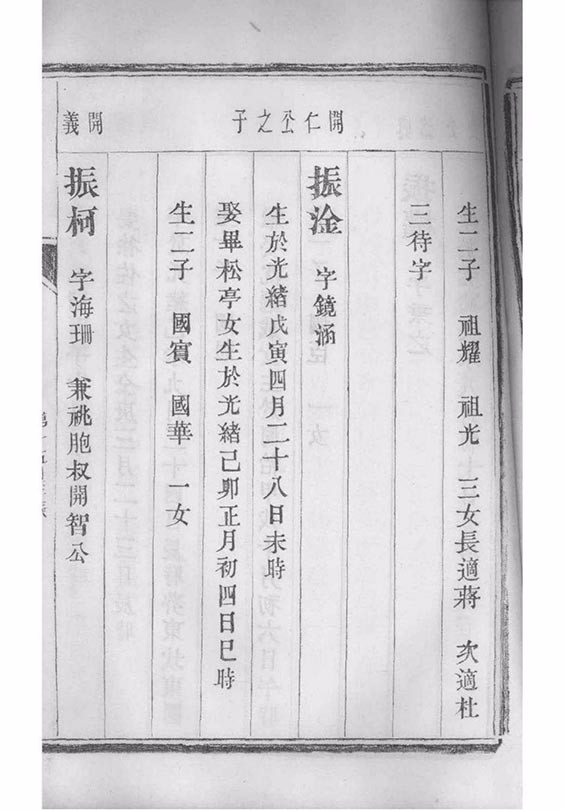 生二子　祖耀　祖光　三女長適蔣　次適杜
三待字
開仁公之子
振淦　字鏡涵
生於光緒戊寅四月二十八日未時
娶畢松亭女生於光緒己卯正月初四日巳時
生二子　國賓　國華　一女
開義
振柯　字海珊　兼祧胞叔開智公